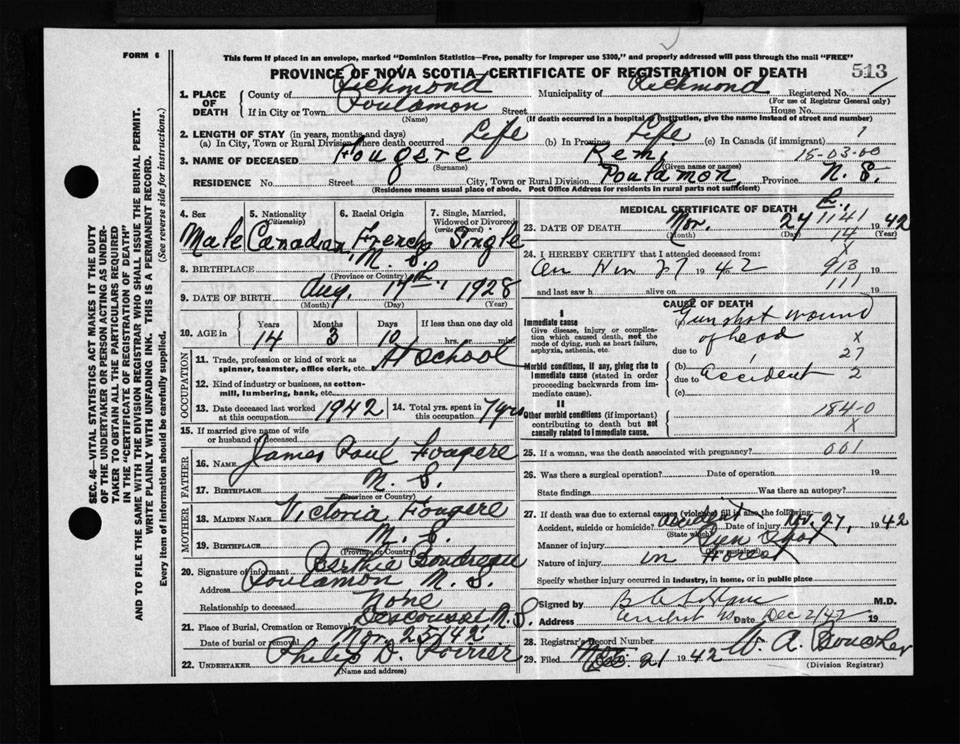 FORM 6
This form if placed in an envelope, marked "Dominion Statistics—Free, penalty for improper use $300," and properly addressed will pass through the mail "FREE"
PROVINCE OF NOVA SCOTIA—CERTIFICATE OF REGISTRATION OF DEATH 513
1. PLACE OF DEATH County of Richmond Municipality of Richmond Registered No. 1
(For use of Registrar General only)
If in City or Town Poulamon Street House No.
(Name) (If death occurred in a hospital or institution, give the name instead of street and number)
2. LENGTH OF STAY (in years, months and days)
(a) In City, Town or Rural Division where death occurred Life (b) In Province Life (c) In Canada (if immigrant) 1
3. NAME OF DECEASED Fougere Remi 15-03-00
(Surname) (Given name or names)
RESIDENCE No. Street City, Town or Rural Division Poulamon, Province N. S.
(Residence means usual place of abode. Post Office Address for residents in rural parts not sufficient)
SEC. 46—VITAL STATISTICS ACT MAKES IT THE DUTY
OF THE UNDERTAKER OR PERSON ACTING AS UNDER-
TAKER TO OBTAIN ALL THE PARTICULARS REQUIRED
IN THE "CERTIFICATE OF REGISTRATION OF DEATH"
AND TO FILE THE SAME WITH THE DIVISION REGISTRAR WHO SHALL ISSUE THE BURIAL PERMIT.
WRITE PLAINLY WITH UNFADING INK. THIS IS A PERMANENT RECORD.
Every item of information should be carefully supplied. (See reverse side for instructions.)
4. Sex 5. Nationality (Citizenship) 6. Racial Origin 7. Single, Married, Widowed or Divorced (write the word)
Male Canadian French Single
8. BIRTHPLACE N. S.
(Province or Country)
9. DATE OF BIRTH Aug. 14th, 1928
(Month) (Day) (Year)
10. AGE in Years Months Days If less than one day old
14 3 10 hrs. min.
OCCUPATION
11. Trade, profession or kind of work as spinner, teamster, office clerk, etc. At School
12. Kind of industry or business, as cotton-mill, lumbering, bank, etc.
13. Date deceased last worked at this occupation 1942 14. Total yrs. spent in this occupation 7 yrs
15. If married give name of wife or husband of deceased
FATHER
16. NAME James Paul Fougere
17. BIRTHPLACE N. S.
(Province or Country)
MOTHER
18. MAIDEN NAME Victoria Fougere
19. BIRTHPLACE N. S.
(Province or Country)
20. Signature of informant Bertha Boudreau
Address Poulamon N. S.
Relationship to deceased None
21. Place of Burial, Cremation or Removal Descousse N.S.
Date of burial or removal Nov. 25/42
22. UNDERTAKER Philip D. Poirier
(Name and address)
MEDICAL CERTIFICATE OF DEATH
23. DATE OF DEATH Nov. 24 1141 1942
(Month) (Day) (Year)
14
X
24. I HEREBY CERTIFY that I attended deceased from:
on Nov 27 1942 913 19
and last saw h alive on 111 19
CAUSE OF DEATH
I
Immediate cause
Give disease, injury or complication which caused death, not the mode of dying, such as heart failure, asphyxia, asthenia, etc.
Gun shot wound
of head X
due to 27
Morbid conditions, if any, giving rise to immediate cause (stated in order proceeding backwards from immediate cause).
(b) due to accident 2
(c)
II
Other morbid conditions (if important) contributing to death but not causally related to immediate cause.
184-0
X
25. If a woman, was the death associated with pregnancy? 001
26. Was there a surgical operation? Date of operation 19
State findings Was there an autopsy?
27. If death was due to external causes (violence) fill in also the following:
Accident, suicide or homicide? accident Date of injury Nov. 27, 1942
(State which)
Manner of injury Gun Shot
(How sustained)
Nature of injury in Head
Specify whether injury occurred in industry, in home, or in public place
Signed by M.D.
Address Date Dec 2/42 19
28. Registrar's Record Number
29. Filed Dec. 21 1942 W. A. Boucher
(Division Registrar)